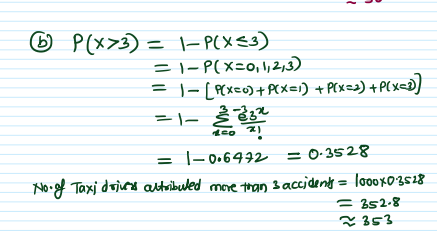 ≈ 50
(b) P(X>3) = 1-P(X≤3)
= 1-P(X=0,1,2,3)
= 1-[P(X=0)+P(X=1)+P(X=2)+P(X=3)]
= 1- 3 Σ x=0 e^-3 3^x / x!
= 1-0.6472 = 0.3528
No. of Taxi drivers attributed more than 3 accidents = 1000x0.3528
= 352.8
≈ 353